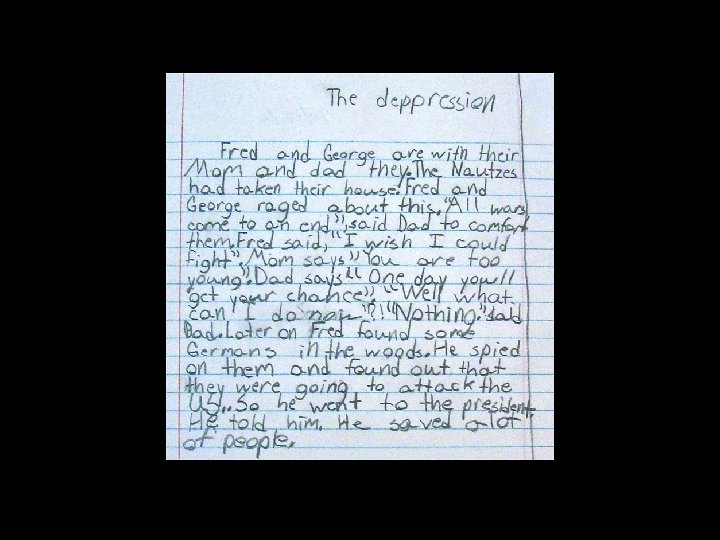 The deppression
Fred and George are with their
Mom and dad they. The Nautzes
had taken their house. Fred and
George raged about this. "All wars
come to an end", said Dad to comfort
them. Fred said, "I wish I could
fight". Mom says "You are too
young". Dad says "One day you'll
get your chance". "Well what
can I do now"?! "Nothing." said
Dad. Later on Fred found some
Germans in the woods. He spied
on them and found out that
they were going to attack the
US.. So he went to the president.
He told him. He saved a lot
of people.